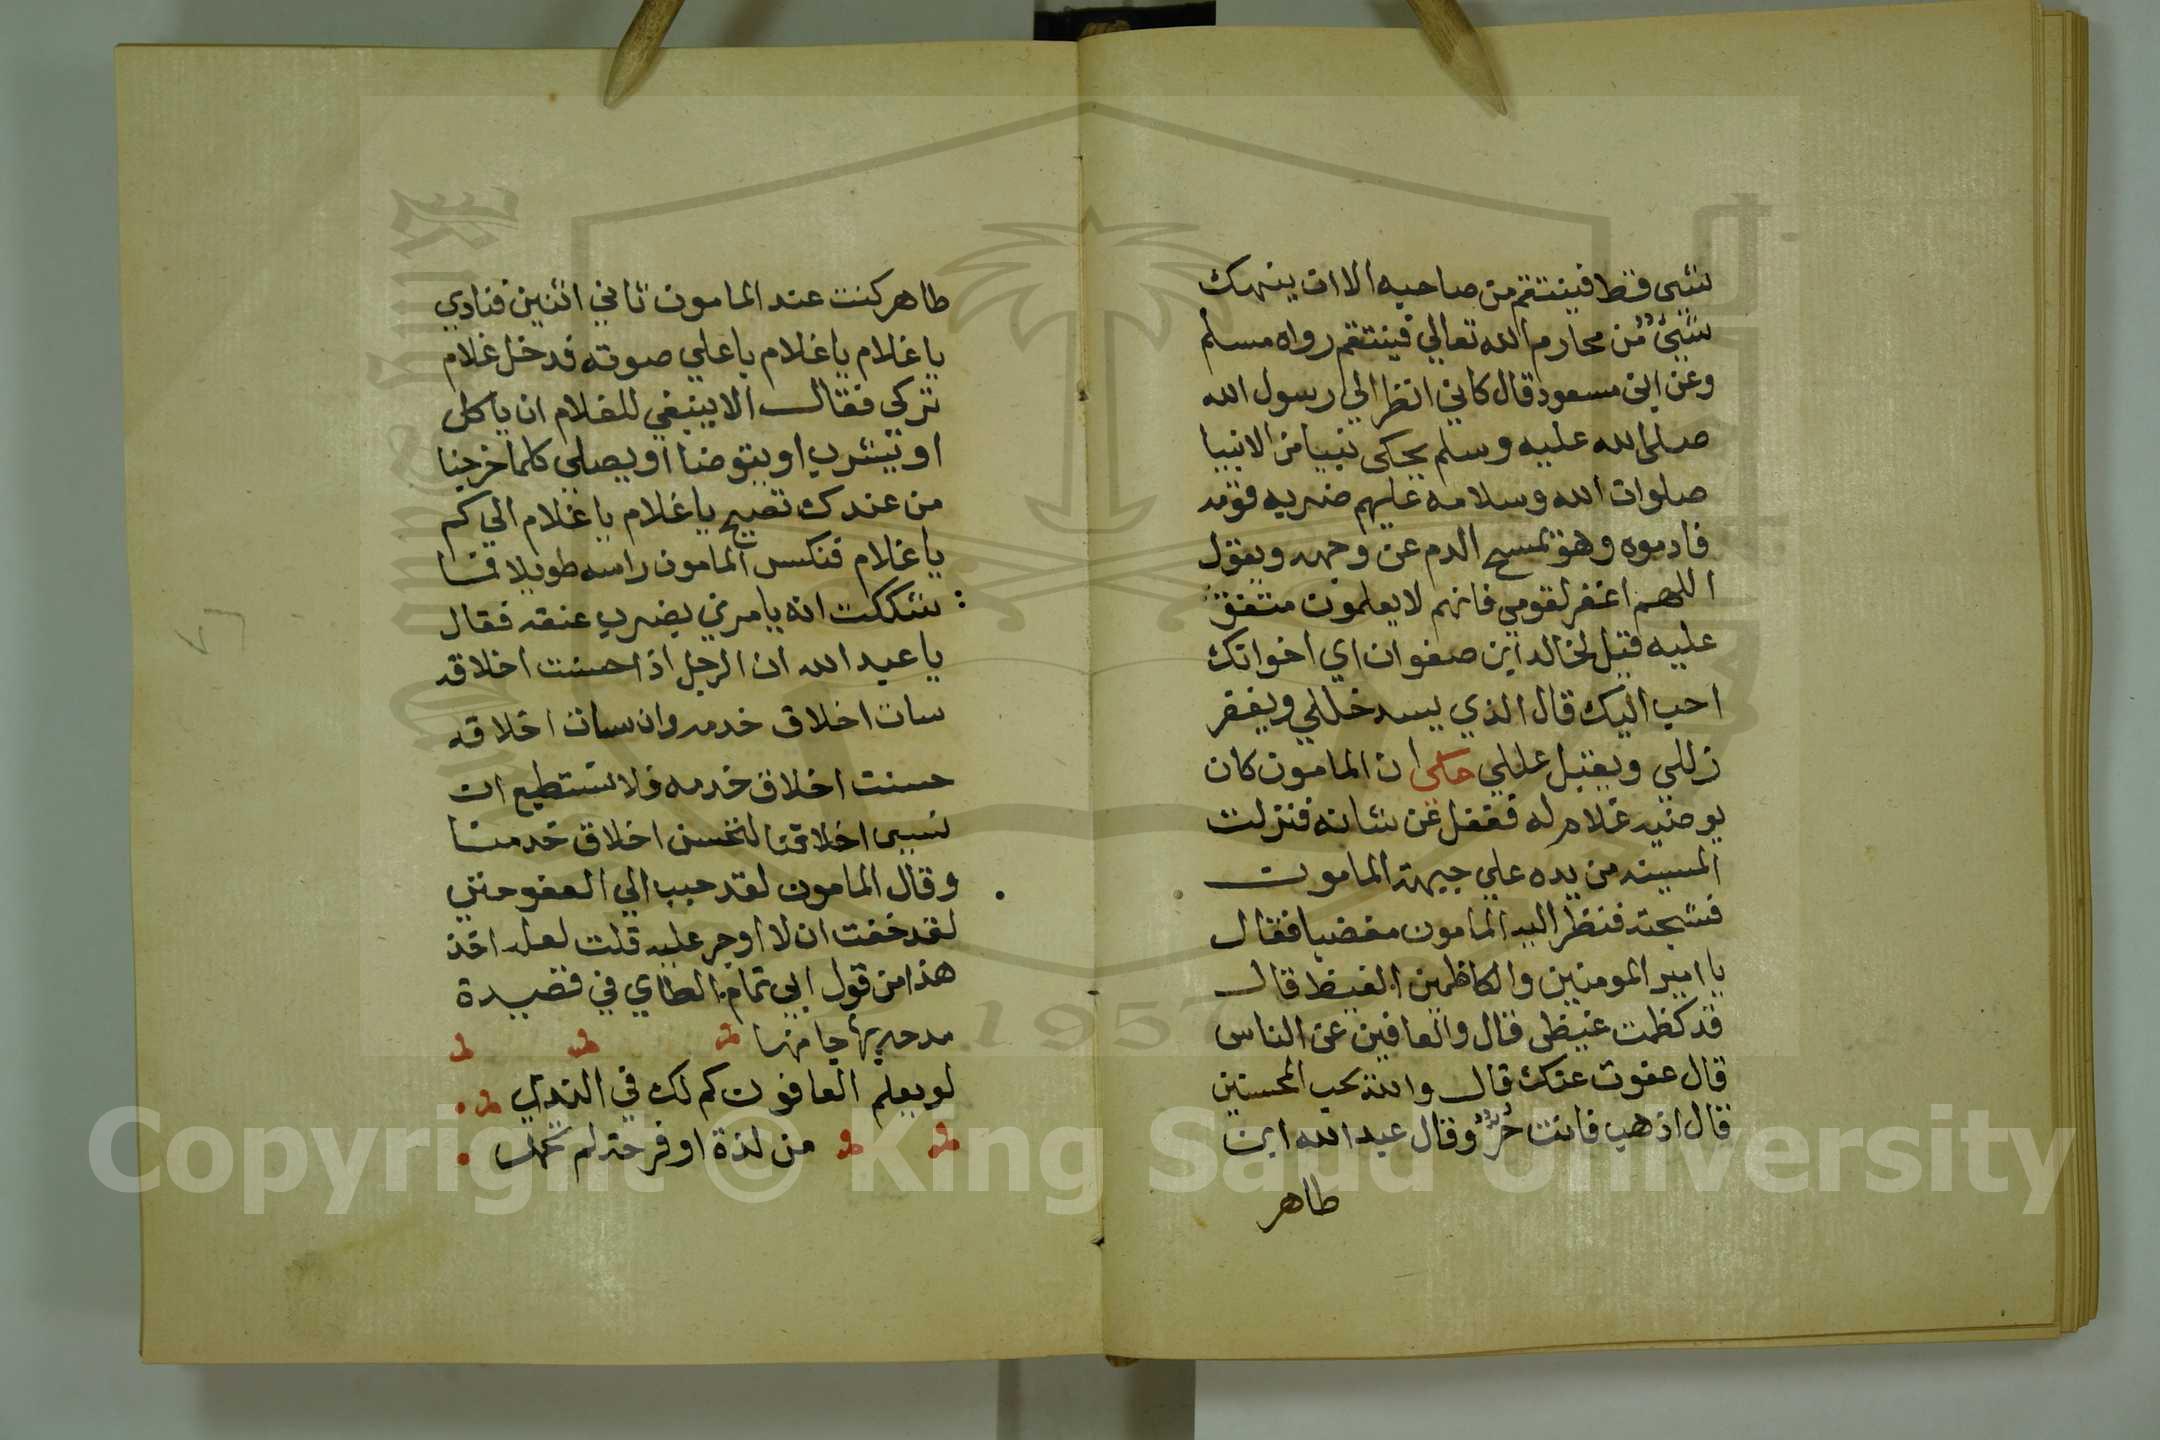 شيء قط فينتقم من صاحبه الا ان ينهك
شيءٌ من محارم الله تعالي فينتقم رواه مسلم
وعن ابن مسعود قال كاني انظر الي رسول الله
صلى الله عليه وسلم يحكى نبيا من الانبيا
صلوات الله وسلامه عليهم ضربه قومه
فادموه وهو يمسح الدم عن وجهه ويقول
اللهم اغفر لقومي فانهم لا يعلمون متفق
عليه قيل لخالد ابن صفوان اي اخوانك
احب اليك قال الذي يسد خللي ويغفر
زللي ويقبل عللي حكى ان المامون كان
يوضيه غلام له فغفل عن شانه فنزلت
المسينه من يده علي جبهة المامون
فشجته فنظر اليه المامون مغضبا فقال
يا امير المومنين والكاظمين الغيظ قال
قد كظمت غيظى قال والعافين عن الناس
قال عفوت عنك قال والله يحب المحسنين
قال اذهب فانت حرٌّ وقال عبد الله ابن
طاهر
طاهر كنت عند المامون ثاني اثنين فنادي
يا غلام يا غلام باعلي صوته فدخل غلام
تركي فقال الا ينبغي للغلام ان ياكل
او يشرب او يتوضا او يصلي كلما خرجنا
من عندك تصيح يا غلام يا غلام الي كم
يا غلام فنكس المامون راسه طويلا فما
شككت انه يامرني بضرب عنقه فقال
يا عبد الله ان الرجل اذا حسنت اخلاقه
سات اخلاق خدمه وان سات اخلاقه
حسنت اخلاق خدمه فلا نستطيع ان
نسيى اخلاقنا لتحسن اخلاق خدمنا
وقال المامون لقد حبب الي العفو حتي
لقد خفت ان لا اوجر عليه قلت لعله اخذ
هذا من قول ابي تمام الطاي في قصيدة
مدحه بها منها
لو يعلم العافون كم لك في الندي
من لذة او فرحة لم تحمد
Copyright © King Saud University
1957